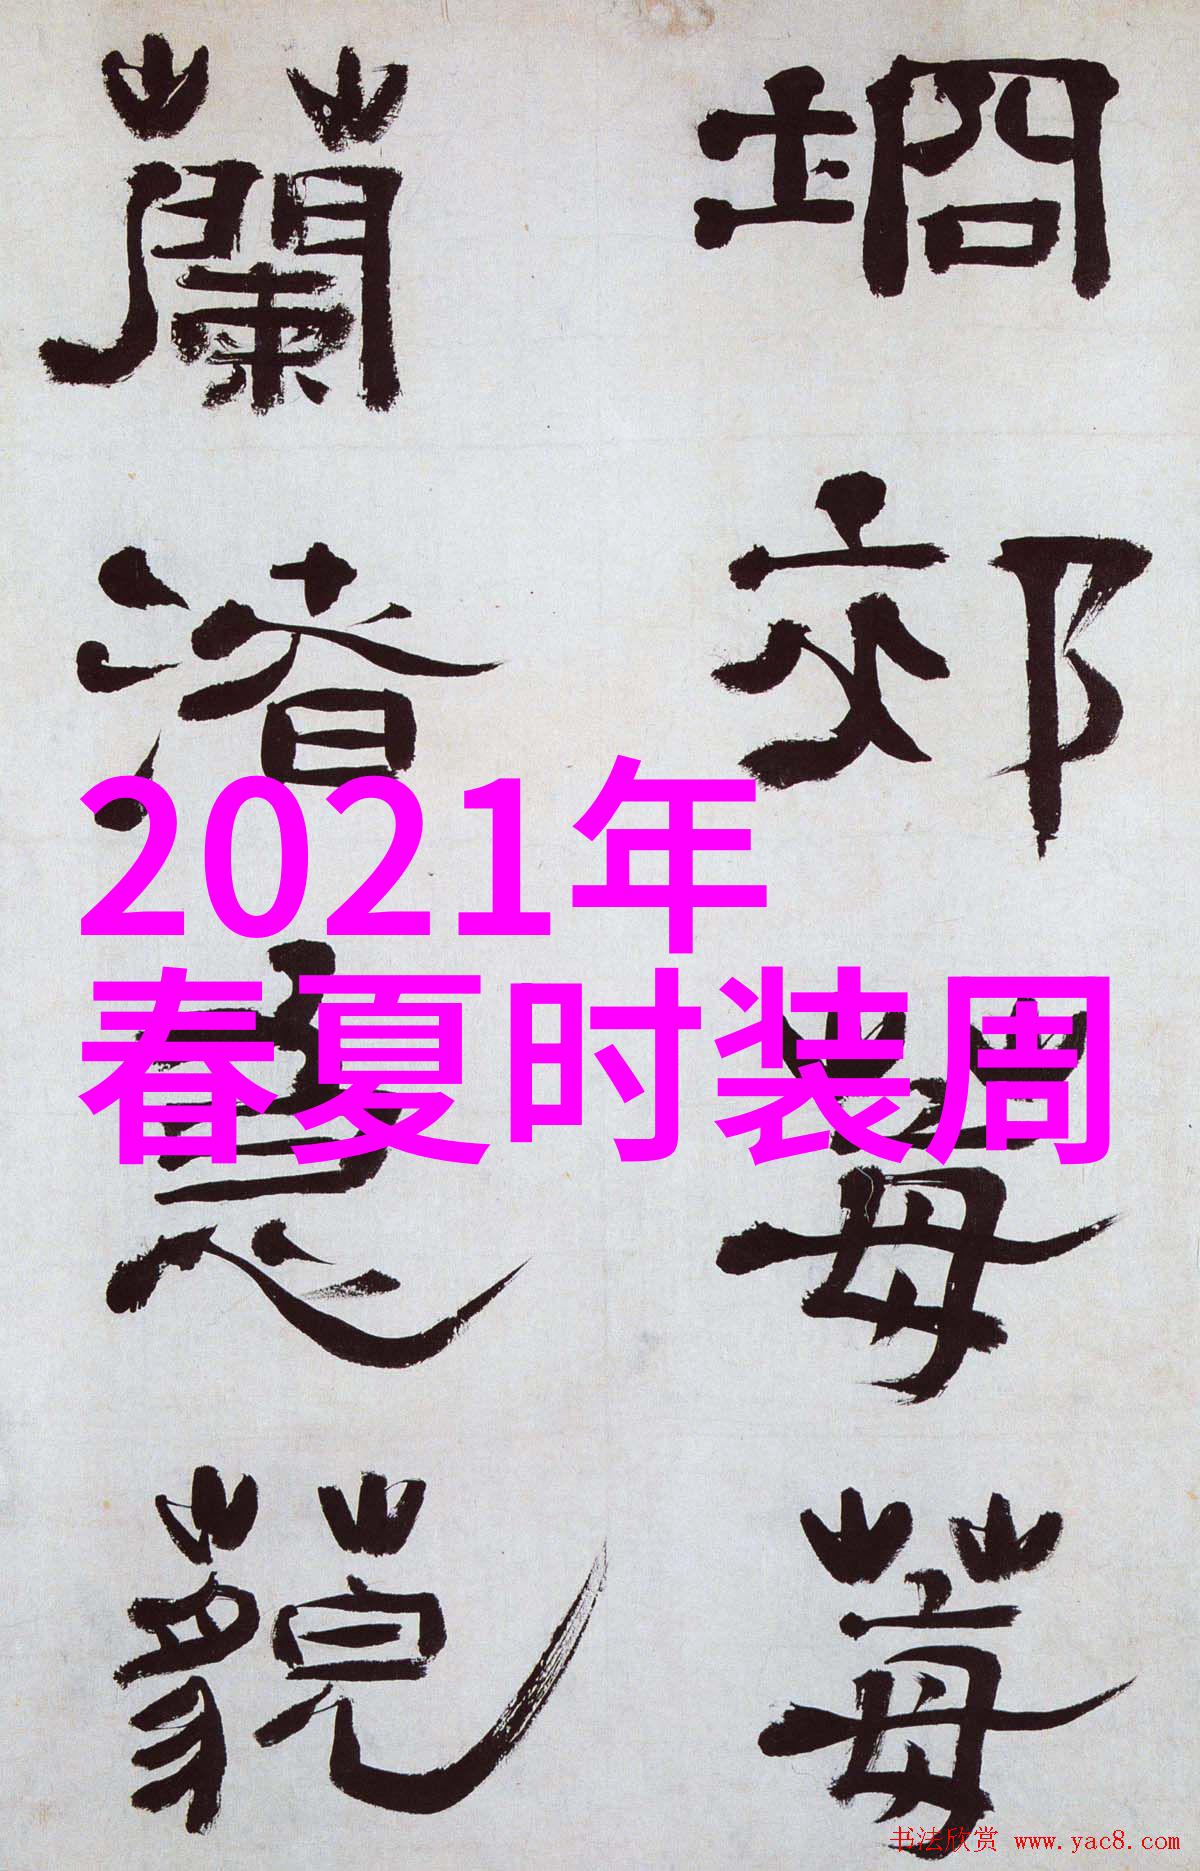 坰郊莓莓
蘭渚藐
2021年
春夏时装周
书法欣赏 www.yac8.com